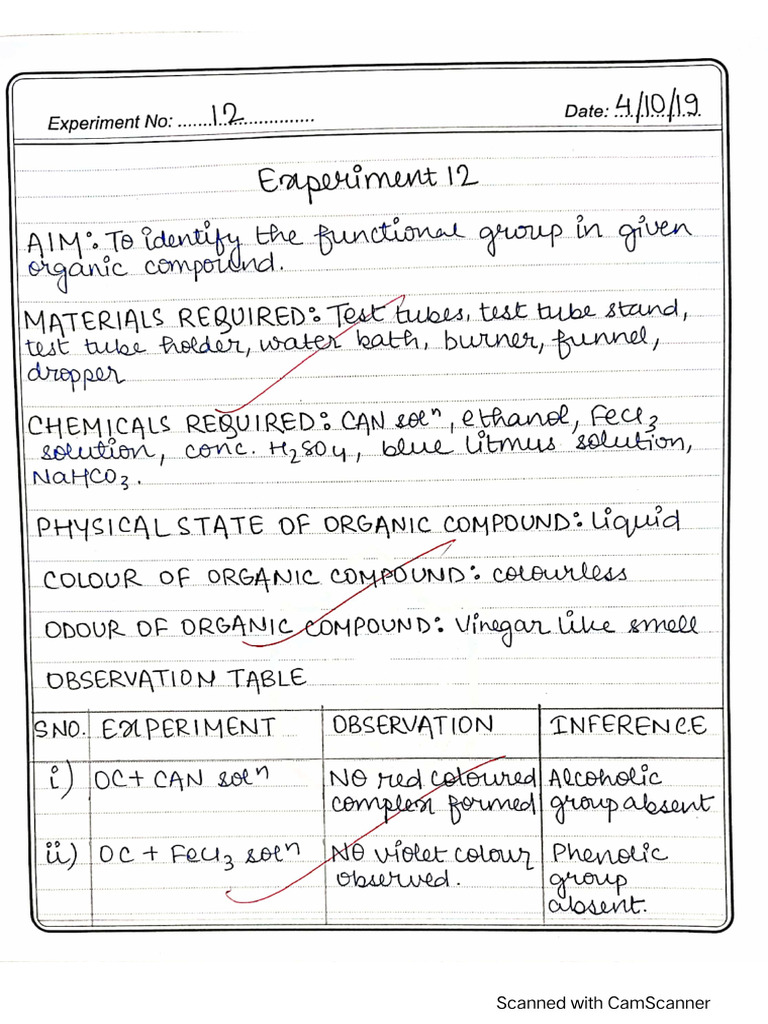 Experiment No: ......12................
Date: 4/10/19
Experiment 12
AIM: To identify the functional group in given
organic compound.
MATERIALS REQUIRED: Test tubes, test tube stand,
test tube holder, water bath, burner, funnel,
dropper
CHEMICALS REQUIRED: CAN solⁿ, ethanol, FeCl₃
solution, conc. H₂SO₄, blue litmus solution,
NaHCO₃.
PHYSICAL STATE OF ORGANIC COMPOUND: Liquid
COLOUR OF ORGANIC COMPOUND: colourless
ODOUR OF ORGANIC COMPOUND: Vinegar like smell
OBSERVATION TABLE
SNO. EXPERIMENT OBSERVATION INFERENCE
i) OC + CAN solⁿ NO red coloured Alcoholic
complex formed group absent
ii) OC + FeCl₃ solⁿ NO violet colour Phenolic
observed. group
absent.
Scanned with CamScanner